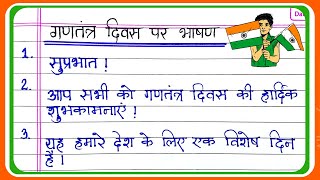 गणतंत्र दिवस पर भाषण
1. सुप्रभात !
2. आप सभी को गणतंत्र दिवस की हार्दिक
शुभकामनाएं !
3. यह हमारे देश के लिए एक विशेष दिन
है ।